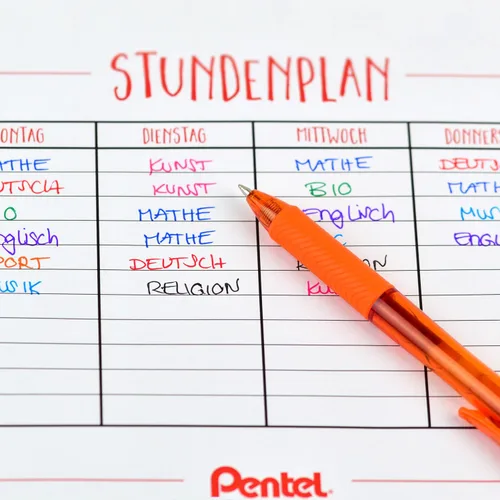 STUNDENPLAN
ONTAG DIENSTAG MITTWOCH DONNERS
ATHE KUNST MATHE DEUTS
UTSCH KUNST BIO MATH
IO MATHE Englisch MUS
nglisch MATHE ENG
PORT DEUTSCH
USIK RELIGION KU
Pentel